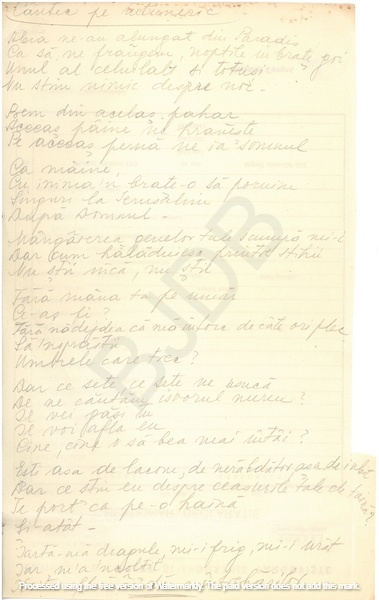 Cântec pe întuneric
Abia ne-au alungat din Paradis
Ca să ne frângem, nopțile în brațe goi
Unul al celuilalt și totuși
Nu știm nimic despre noi -
Bem din același pahar
Aceeași pâine ne hrănește
Pe aceeași pernă ne ia somnul
Ca mâine,
Cu inima'n brațe-o să pornim
Singuri la Ierusalim
După Domnul -
Mângâierea genelor tale scumpă mi-i
Dar cum hălăduiesc printre stihii
Nu știi nica, nu știi
Fără mâna ta pe umăr
Ce-aș fi?
Fără nădejdea că mă întorc de câte ori plec
Să
Umbrele care trec?
Dar ce sete, ce sete ne usucă
De ne căutăm isvorul mereu?
Îl vei găsi tu
Îl voi afla eu
Cine, cine o să bea mai întâi?
Ești așa de lacom, de nerăbdător, așa de
Dar ce știu eu despre ceasurile tale de
Te port ca pe-o haină
Și atât -
Iartă-mă dragule, mi-i frig, mi-i urât
Iar m'a
Processed using the free version of Watermarkly. The paid version does not add this mark.
BJDB